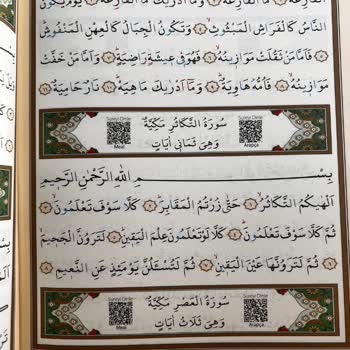 الْقَارِعَةُ ﴿١﴾ مَا الْقَارِعَةُ ﴿٢﴾ وَمَٓا اَدْرٰيكَ مَا الْقَارِعَةُ ﴿٣﴾ يَوْمَ يَكُونُ
النَّاسُ كَالْفَرَاشِ الْمَبْثُوثِ ﴿٤﴾ وَتَكُونُ الْجِبَالُ كَالْعِهْنِ الْمَنْفُوشِ
﴿٥﴾ فَاَمَّا مَنْ ثَقُلَتْ مَوَازٖينُهُ ﴿٦﴾ فَهُوَ فٖي عٖيشَةٍ رَاضِيَةٍ ﴿٧﴾ وَاَمَّا مَنْ خَفَّتْ
مَوَازٖينُهُ ﴿٨﴾ فَاُمُّهُ هَاوِيَةٌ ﴿٩﴾ وَمَٓا اَدْرٰيكَ مَاهِيَهْ ﴿١٠﴾ نَارٌ حَامِيَةٌ ﴿١١﴾
Sureyi Dinle
Meal
سُورَةُ التَّكَاثُرِ مَكِّيَّةٌ
وَهِيَ ثَمَانِي اٰيَاتٍ
Sureyi Dinle
Arapça
بِسْمِ اللّٰهِ الرَّحْمٰنِ الرَّحٖيمِ
اَلْهٰيكُمُ التَّكَاثُرُ ﴿١﴾ حَتّٰى زُرْتُمُ الْمَقَابِرَ ﴿٢﴾ كَلَّا سَوْفَ تَعْلَمُونَ ﴿٣﴾
ثُمَّ كَلَّا سَوْفَ تَعْلَمُونَ ﴿٤﴾ كَلَّا لَوْ تَعْلَمُونَ عِلْمَ الْيَقٖينِ ﴿٥﴾ لَتَرَوُنَّ الْجَحٖيمَ
﴿٦﴾ ثُمَّ لَتَرَوُنَّهَا عَيْنَ الْيَقٖينِ ﴿٧﴾ ثُمَّ لَتُسْـَٔلُنَّ يَوْمَئِذٍ عَنِ النَّعٖيمِ ﴿٨﴾
Sureyi Dinle
Meal
سُورَةُ الْعَصْرِ مَكِّيَّةٌ
وَهِيَ ثَلَاثُ اٰيَاتٍ
Sureyi Dinle
Arapça